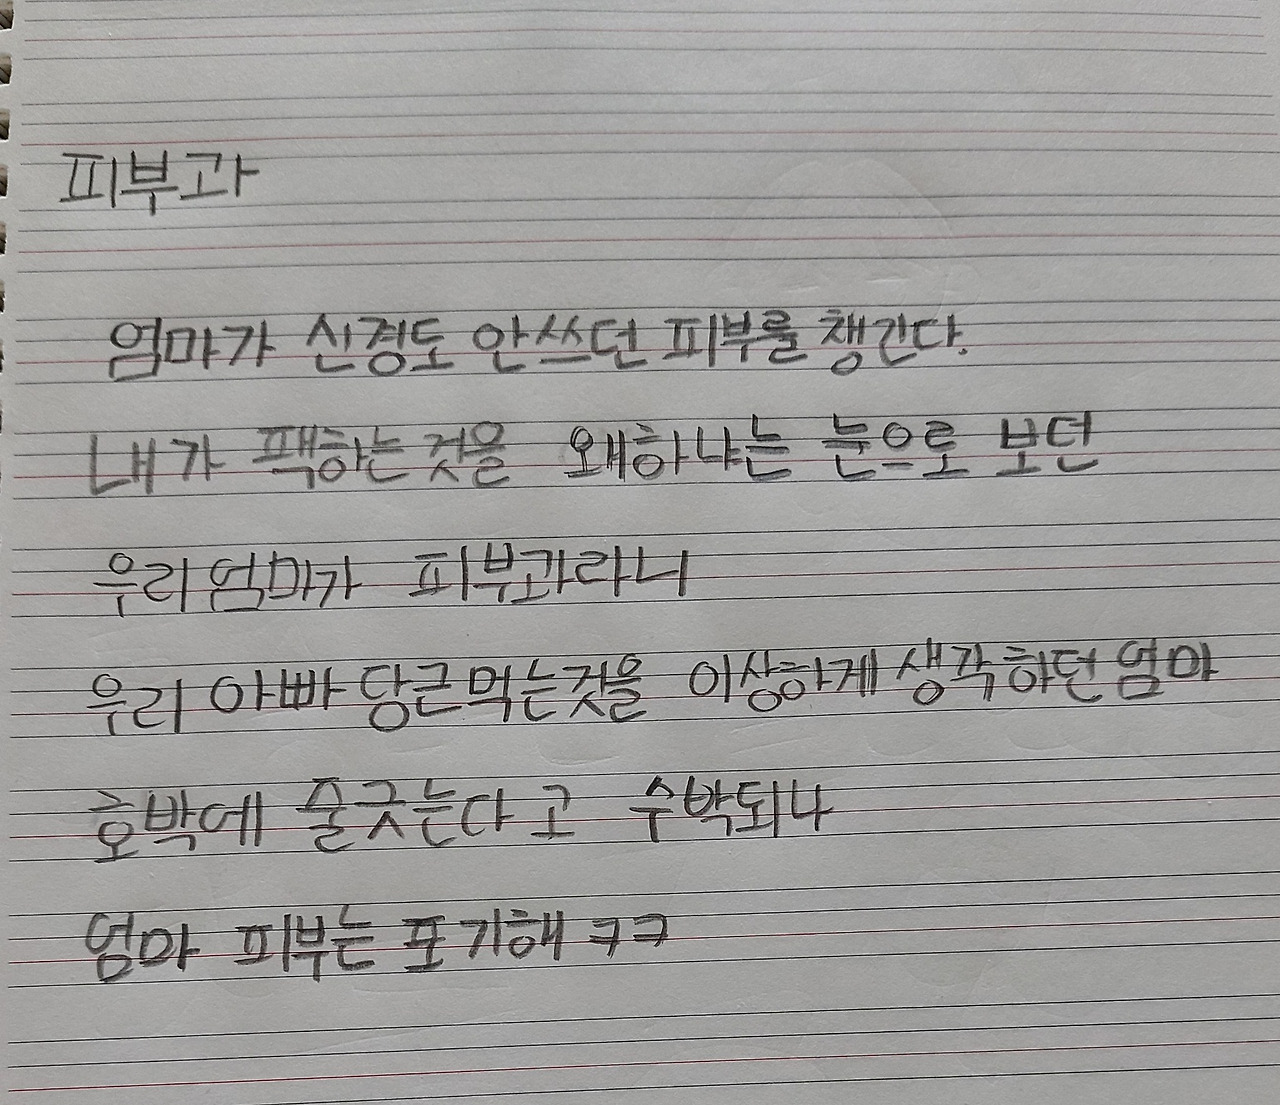 피부과
엄마가 신경도 안쓰던 피부를 챙긴다.
내가 팩하는 것을 왜하냐는 눈으로 보던
우리 엄마가 피부과라니
우리 아빠 당근먹는것을 이상하게 생각하던 엄마
호박에 줄긋는다고 수박되나
엄마 피부는 포기해 ㅋㅋ